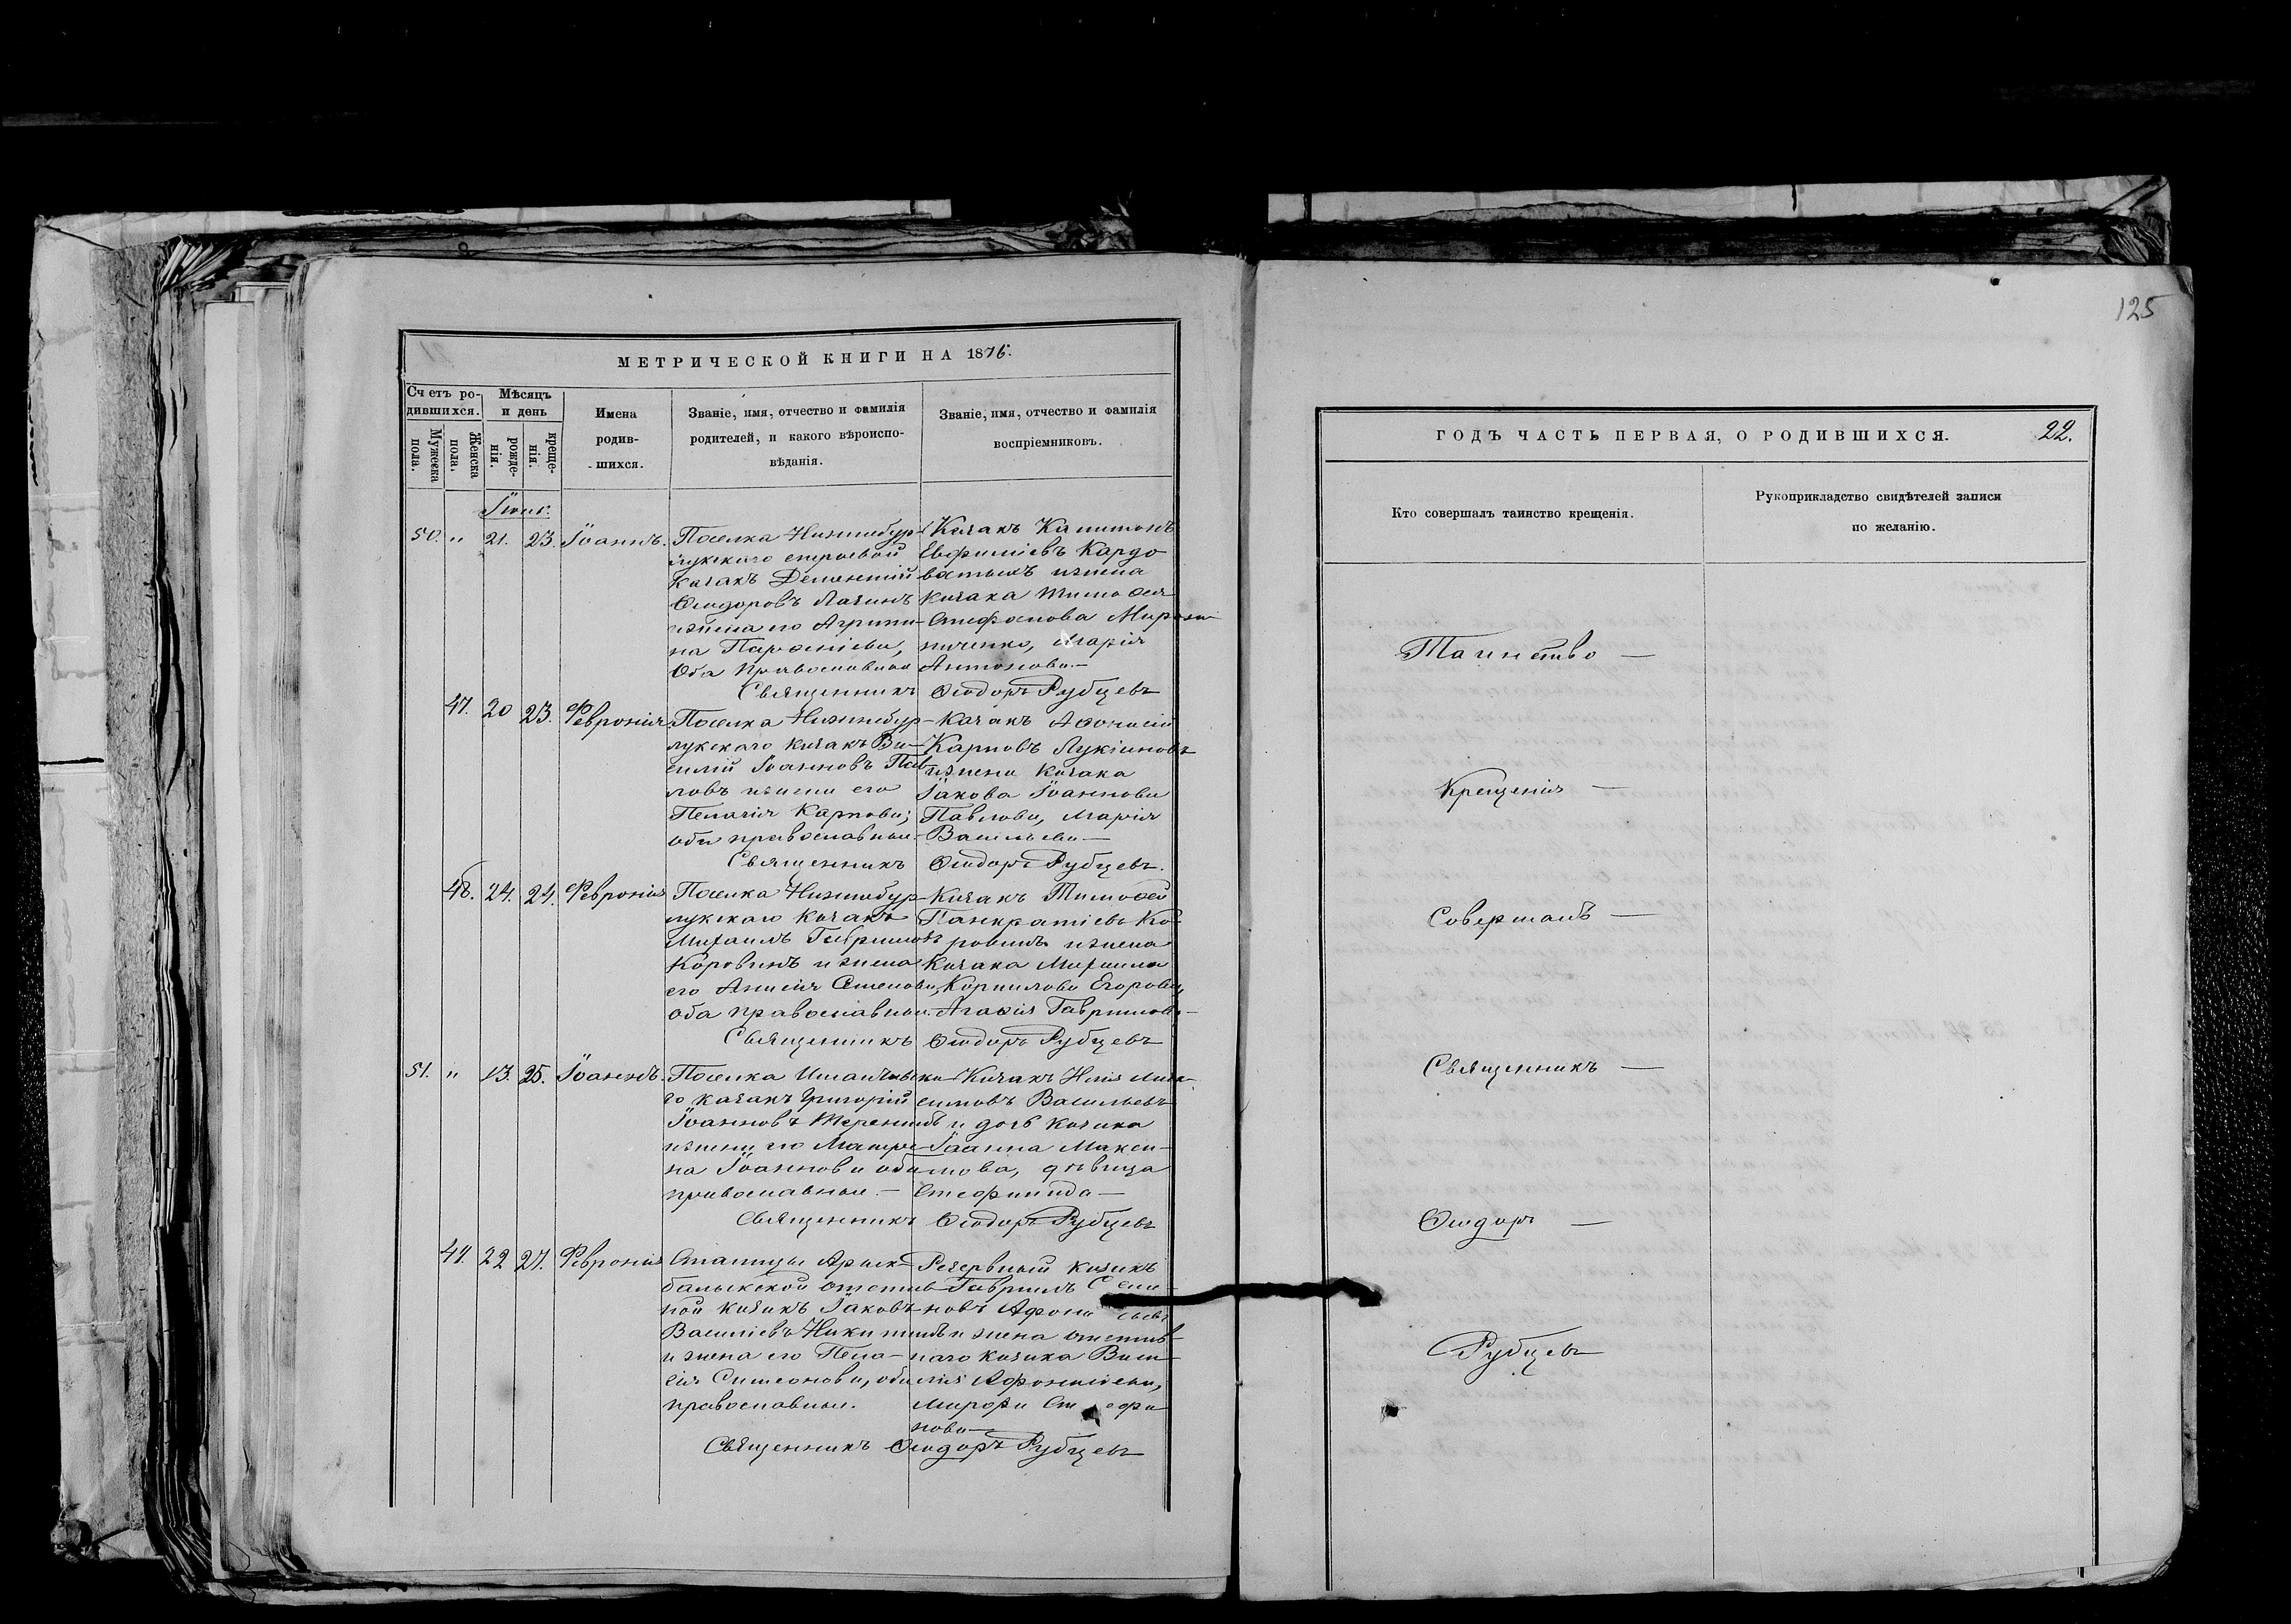 МЕТРИЧЕСКОЙ КНИГИ НА 1876.
Счетъ ро-
дившихся.
Мѣсяцъ
и день
Мужеска
пола.
Женска
пола.
рожде-
нія.
креще-
нія.
Имена
родив-
шихся.
Званіе, имя, отчество и фамилія
родителей, и какого вѣроиспо-
вѣданія.
Званіе, имя, отчество и фамилія
воспріемниковъ.
50. " 21. 23. Іоаннъ.
Поселка Нижнебур-
лукскаго
казакъ Дементій
Ѳеодоровъ Лагинъ
и жена его Агрипи-
на Парѳеніева,
Оба православные
Казакъ Капитонъ
Евфиміевъ Кардо
ватыхъ и жена
казака Тимоѳея
Стефанова Мирош
ниченко, Марія
Антонова.—
Священникъ Ѳеодоръ Рубцевъ
47. 20 23. Февронія.
Поселка Нижнебур-
лукскаго казакъ Ва-
силій Іоанновъ Пав
ловъ и жена его
Пелагія Карпова;
оба православные.
Казакъ Аѳонасій
Карповъ Лукіановъ
и жена казака
Іакова Іоаннова
Павлова, Марія
Васильева—
Священникъ Ѳеодоръ Рубцевъ.
48. 24. 24. Февронія
Поселка Нижнебур-
лукскаго казакъ
Михаилъ Гавриловъ
Коровинъ и жена
его Анисія Семенова,
оба православные.
Казакъ Тимоѳей
Панкратіевъ Ко-
ровинъ и жена
казака Михаила
Корнилова Егорова,
Агаѳія Гаврилова—
Священникъ Ѳеодоръ Рубцевъ
51. " 13. 25. Іоаннъ.
Поселка Имантавска-
го казакъ Григорій
Іоанновъ Терентьевъ
и жена его Матре-
на Іоаннова оба
православные.—
Казакъ Илія Мак-
симовъ Васильевъ
и дочь казака
Іоанна Макси-
мова, дѣвица
Стефанида—
Священникъ Ѳеодоръ Рубцевъ
49. 22 27. Февронія
Станицы Арык-
балыкской отстав-
ной казакъ Іаковъ
Василіевъ Никитинъ
и жена его Пела-
гія Симеонова, оба
православные.
Резервный казакъ
Гавріилъ Семе
новъ Афонасьевъ
и жена отстав-
наго казака Васи-
лія Афонасіева,
Марфа Стефа
нова—
Священникъ Ѳеодоръ Рубцевъ
125
ГОДЪ ЧАСТЬ ПЕРВАЯ, О РОДИВШИХСЯ. 22.
Кто совершалъ таинство крещенія.
Рукоприкладство свидѣтелей записи
по желанію.
Таинство —
Крещенія —
Совершалъ —
Священникъ —
Ѳеодоръ —
Рубцевъ